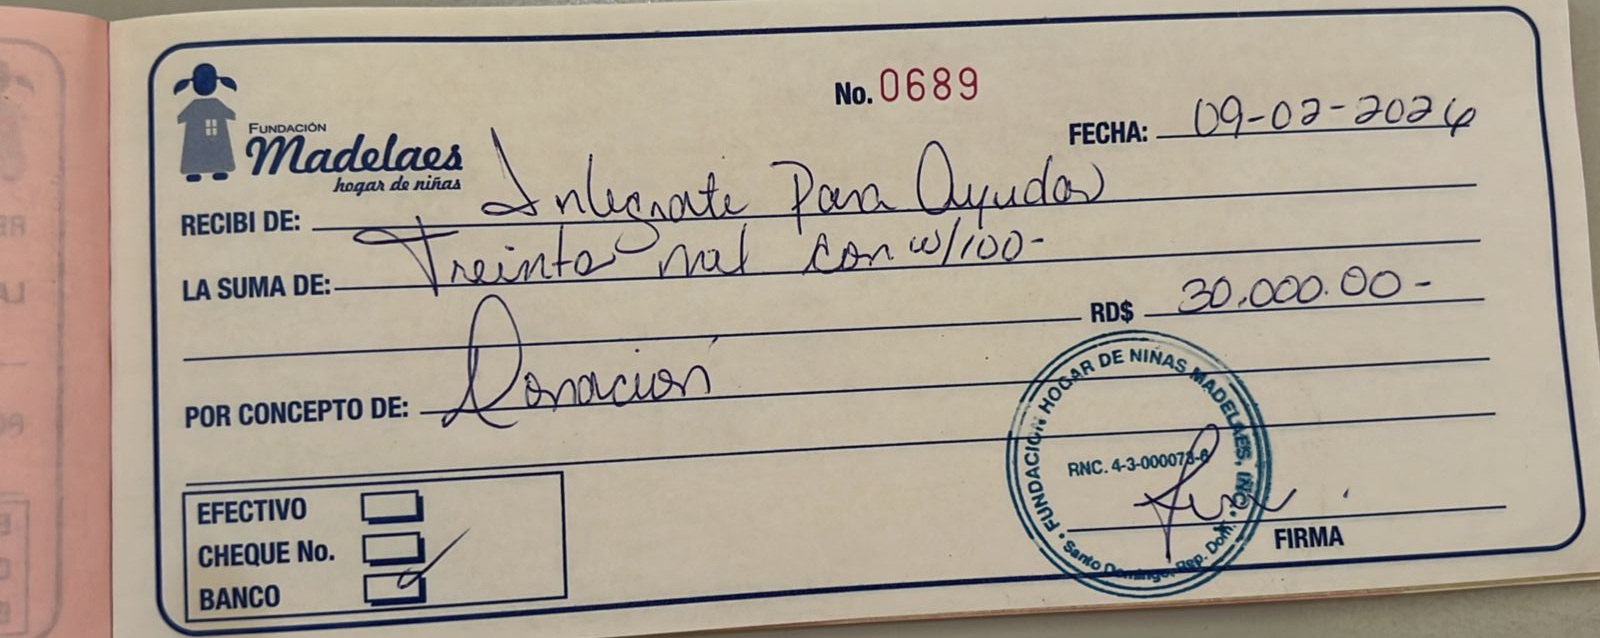 No. 0689
FUNDACIÓN
Madelaes
hogar de niñas
FECHA: 09-02-2026
RECIBI DE: Integrate Para Ayudar
LA SUMA DE: Treinta mil con 00/100-
RD$ 30,000.00-
POR CONCEPTO DE: Donación
FUNDACION HOGAR DE NIÑAS MADELAES, INC.
RNC. 4-3-000073-6
Santo Domingo, Rep. Dom.
FIRMA
EFECTIVO
CHEQUE No.
BANCO